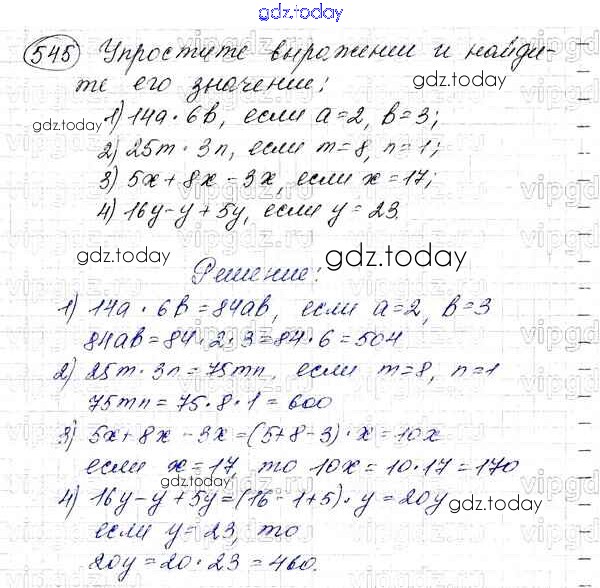 gdz.today
545 Упростите выражении и найди-
те его значение:
1) 14a · 6b, если a=2, b=3;
gdz.today
gdz.today
2) 25m · 3n, если m=8, n=1;
3) 5x+8x-3x, если x=17;
4) 16y-y+5y, если y=23.
gdz.today
gdz.today
Решение:
1) 14a · 6b=84ab, если a=2, b=3
84ab=84·2·3=84·6=504
2) 25m · 3n=75mn, если m=8, n=1
75mn=75·8·1=600
3) 5x+8x-3x=(5+8-3)·x=10x
если x=17, то 10x=10·17=170
4) 16y-y+5y=(16-1+5)·y=20y
gdz.today
если y=23, то
20y=20·23=460.
gdz.today